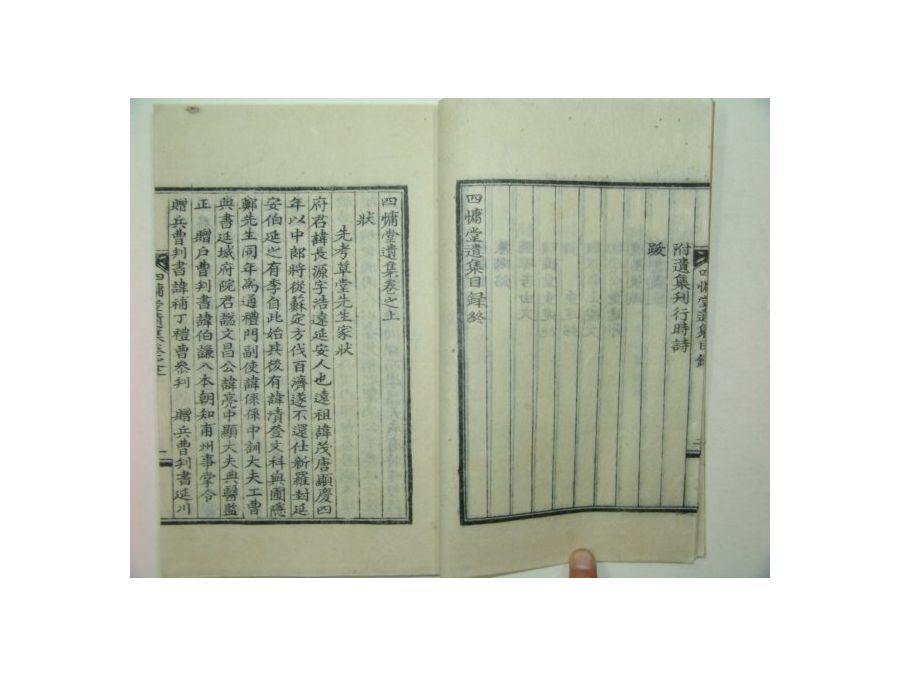 四慵堂遺集目錄
二
附遺集刊行時詩
跋
四慵堂遺集目録終
四慵堂遺集卷之上
狀
先考草堂先生家狀
府君諱長源字浩遠延安人也遠祖諱茂唐顯慶四
年以中郞將從蘇定方伐百濟遂不還仕新羅封延
安伯延之有李自此始其後有諱淸登文科與圃隱
鄭先生同年爲通禮門副使諱係孫中訓大夫工曹
典書延城府院君諡文昌公諱亮中顯大夫典醫監
正 贈戶曹判書諱伯謙入本朝知甫州事掌令
贈兵曹判書諱補丁禮曹叅判 贈兵曹判書延川
四慵堂遺集卷之上
一